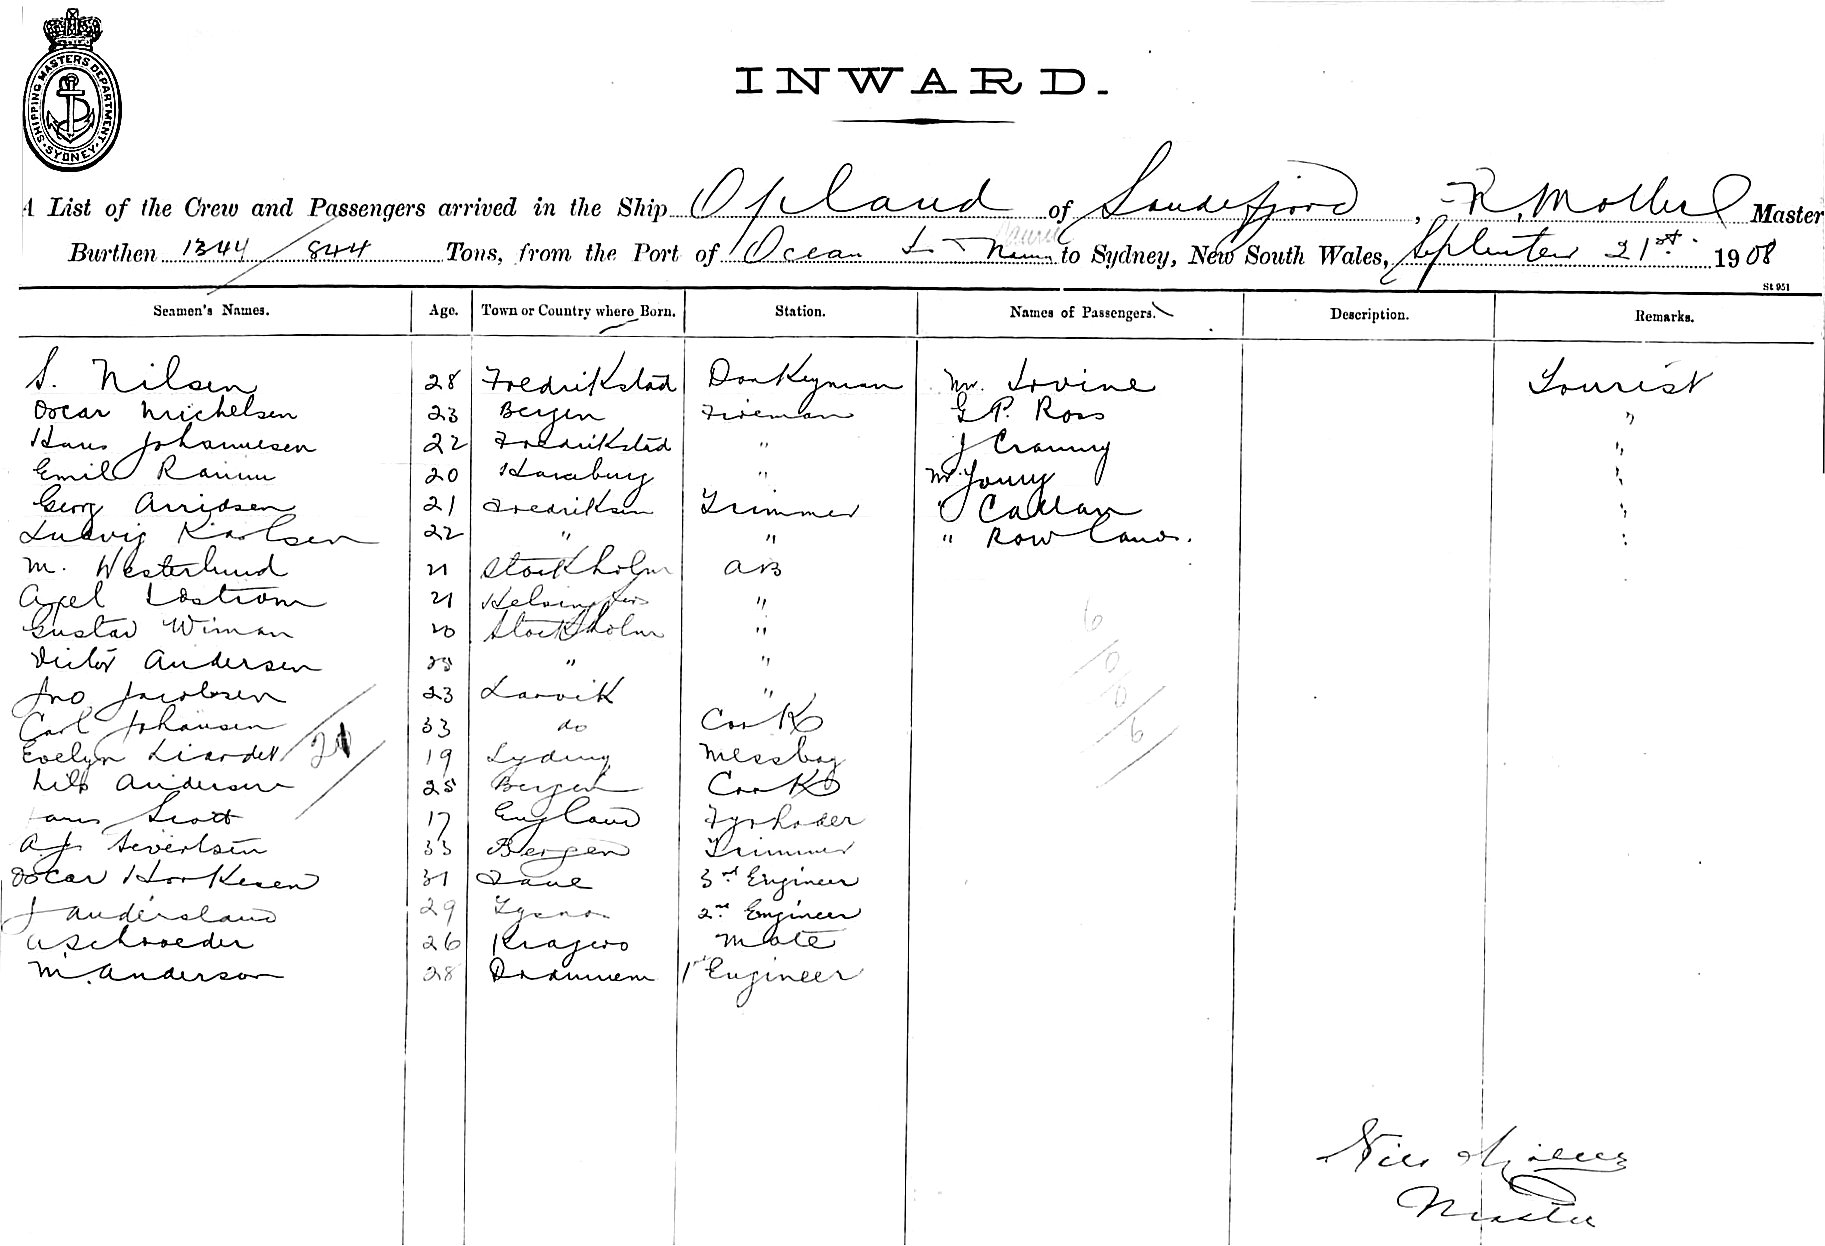 SHIPPING MASTERS DEPARTMENT. SYDNEY
INWARD.
A List of the Crew and Passengers arrived in the Ship Opland of Sandefjord, Master
Burthen 1344/844 Tons, from the Port of Ocean I to Sydney, New South Wales, September 21st 1908
St 951
Seamen's Names. Age. Town or Country where Born. Station. Names of Passengers. Description. Remarks.
S. Nilsen 28 Fredrikstad Donkeyman Mr. Irvine Tourist
Oscar Michelsen 23 Bergen Fireman G P. Ross "
Hans Johannesen 22 Fredrikstad " J "
Emil 20 " Mr. Young "
Georg 21 Trimmer " Callan "
Ludvig Karlsen 22 " " " Rowland. "
M. Westerlund 21 Stockholm AB
Axel 21 Helsingfors "
Gustav Wiman 20 Stockholm "
Victor Andersen "  "
Jno Jacobsen 23 Larvik "
Carl Johansen 33 do Cook
Evelyn Liardet 19 Sydney Messboy
21
Nils Andersen 25 Bergen Cook
Scott 17 England
A. J. Sivertsen 33 Bergen Trimmer
Oscar 31 3rd Engineer
J Andersland 29 2nd Engineer
A Schroeder 26 Kragero Mate
M. Anderson 28 1st Engineer
6/0/0/6
Master